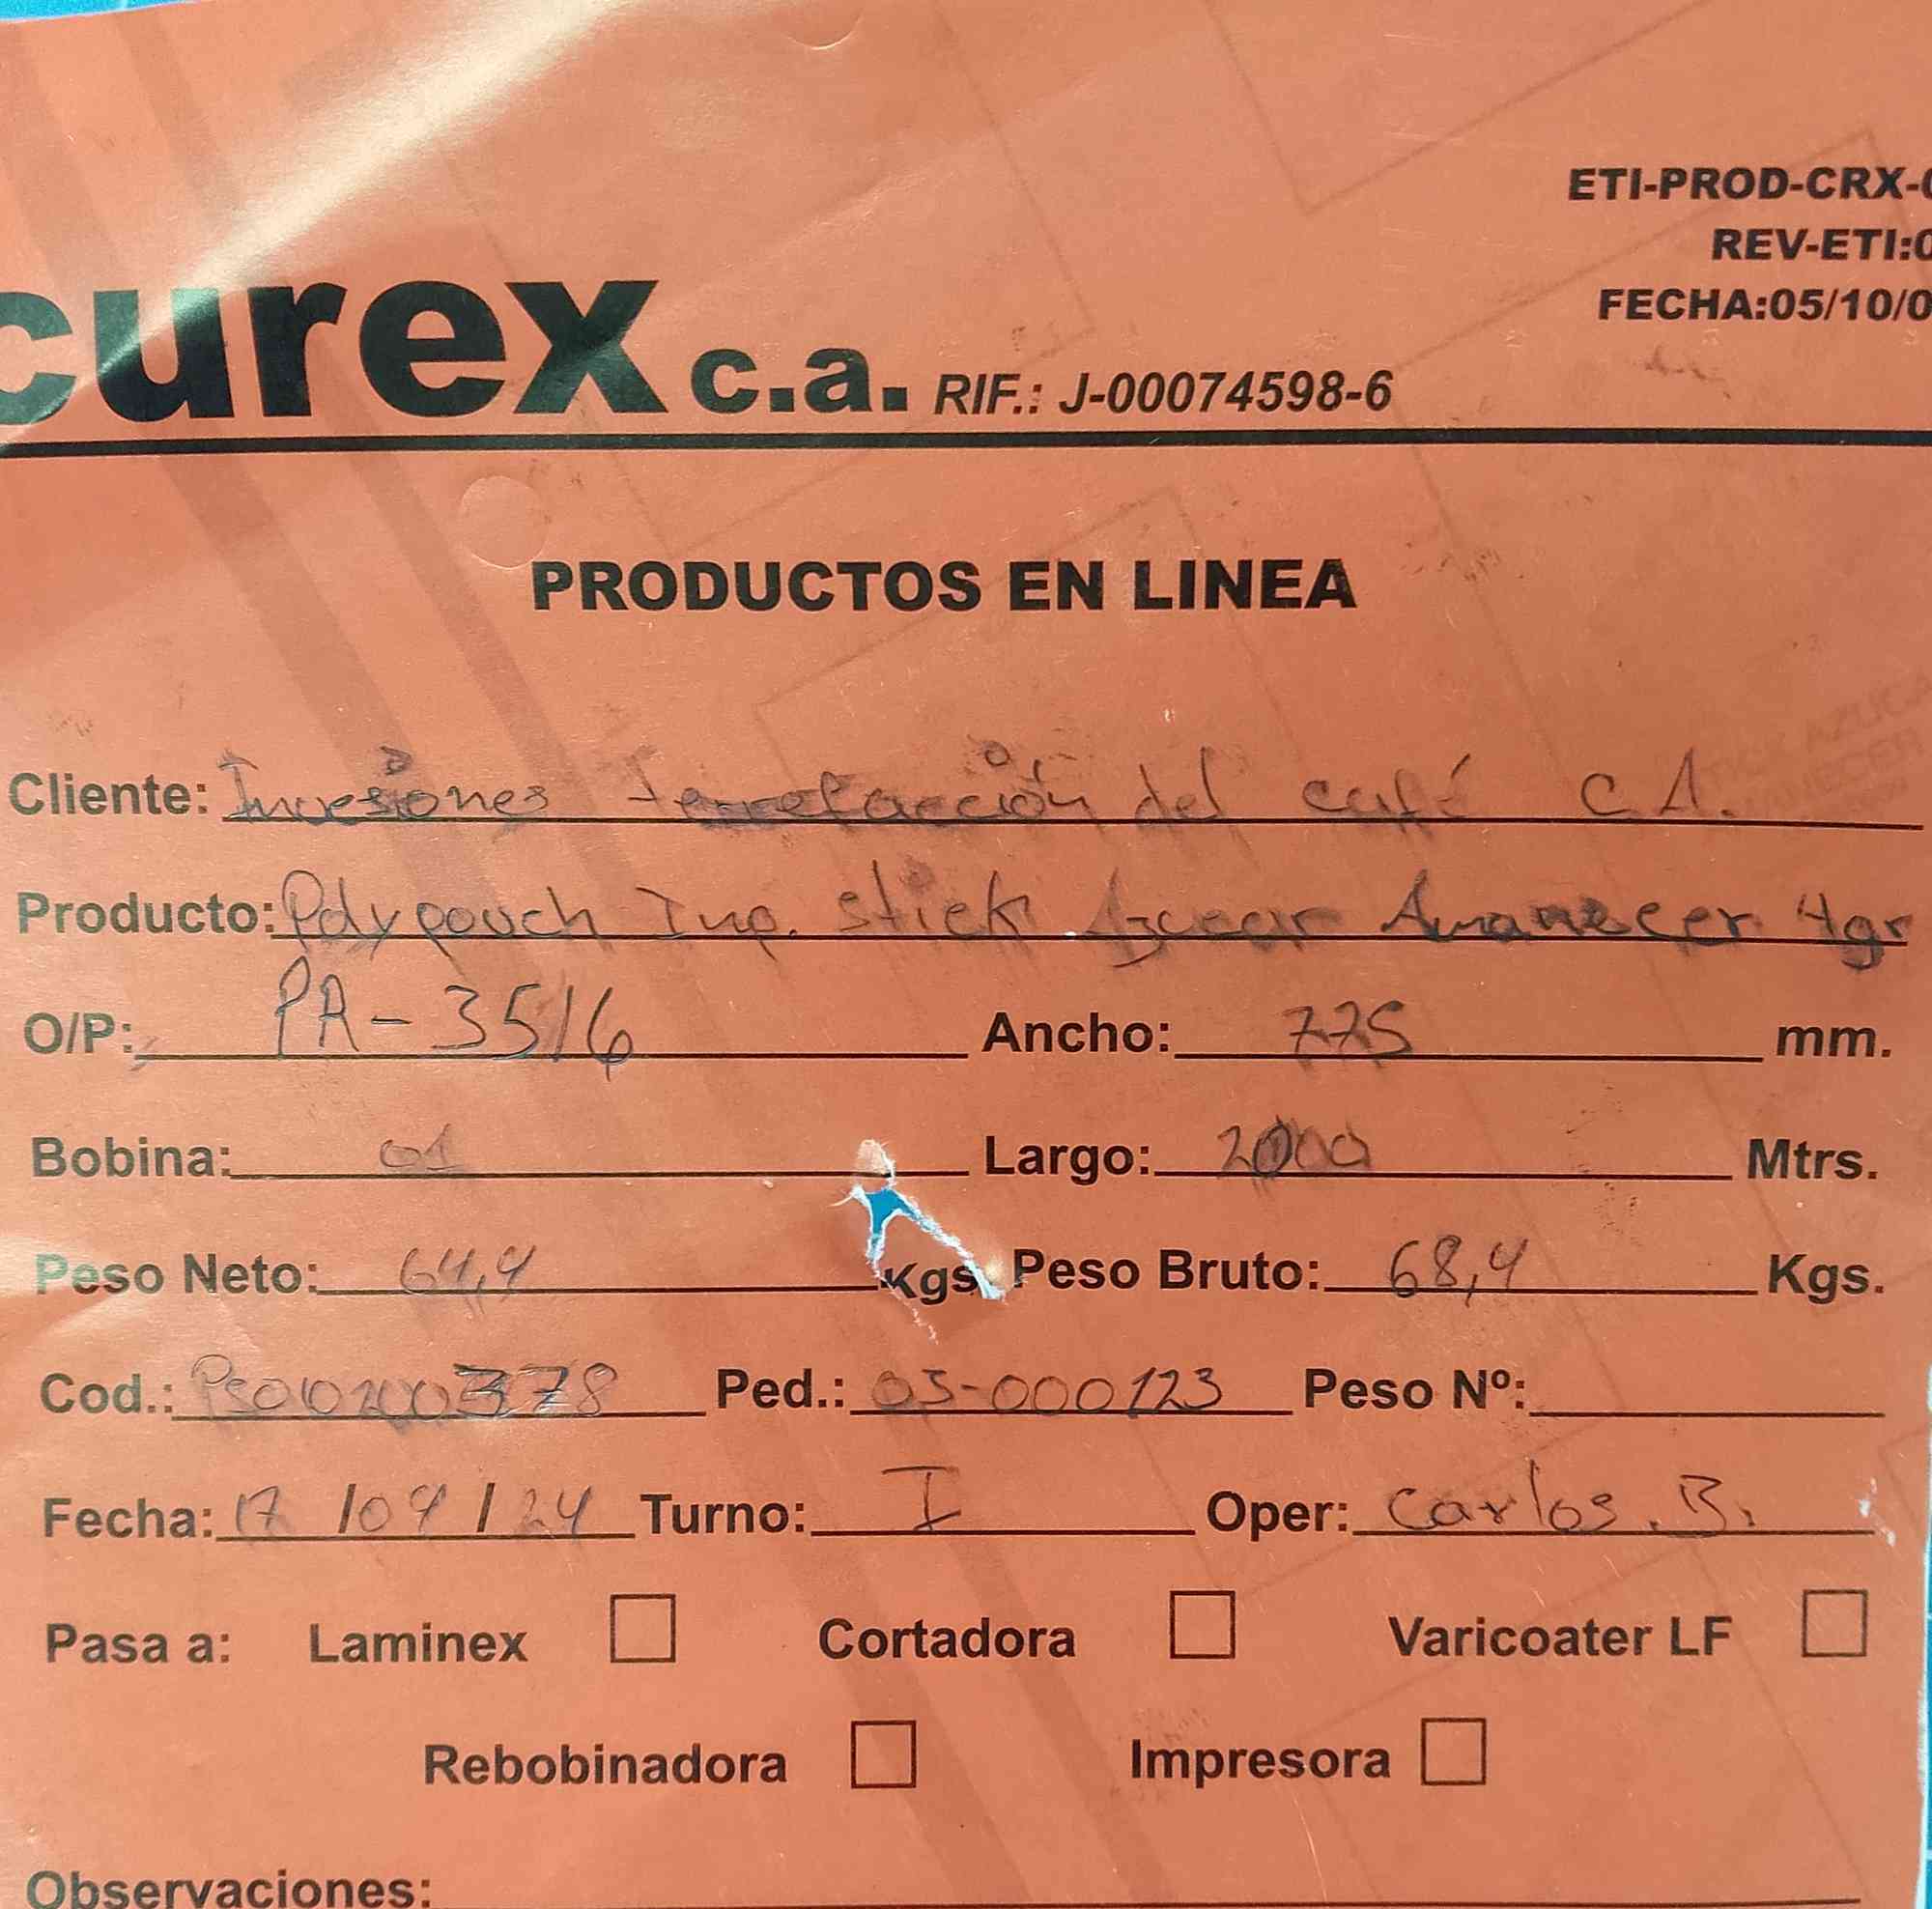 ETI-PROD-CRX-0
REV-ETI:0
FECHA:05/10/0
curex c.a. RIF.: J-00074598-6
PRODUCTOS EN LINEA
Cliente: del café C.A.
Producto: Polypouch Imp. stick Azucar Amanecer 4gr
O/P: PA-3516 Ancho: 775 mm.
Bobina: 01 Largo: 2000 Mtrs.
Peso Neto: 64,4 Kgs. Peso Bruto: 68,4 Kgs.
Cod.: Ped.: 03-000123 Peso Nº:
Fecha: Turno: I Oper: Carlos.B.
Pasa a: Laminex Cortadora Varicoater LF
Rebobinadora Impresora
Observaciones: